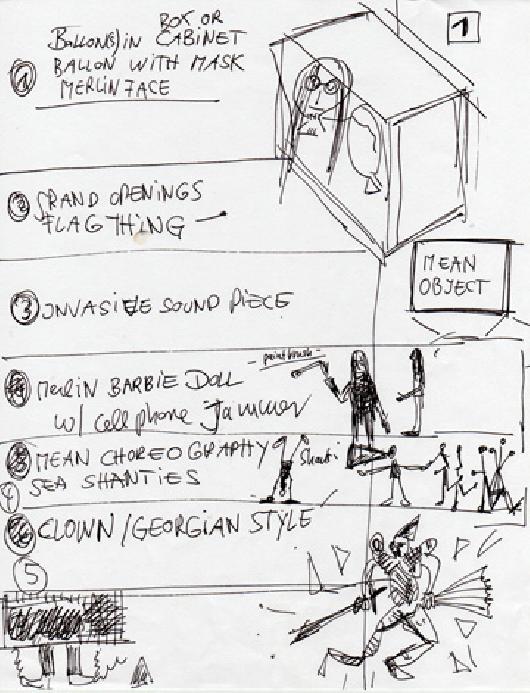 1
BOX OR
BALLON(S) IN CABINET
BALLON WITH MASK
MERLIN FACE
1
2 GRAND OPENINGS
FLAG THING —
MEAN
OBJECT
3 INVASIVE SOUND PIECE
- paintbrush -
MERLIN BARBIE DOLL
w/ cell phone Jammer
MEAN CHOREOGRAPHY
Shanti
4 SEA SHANTIES
CLOWN / GEORGIAN STYLE
5